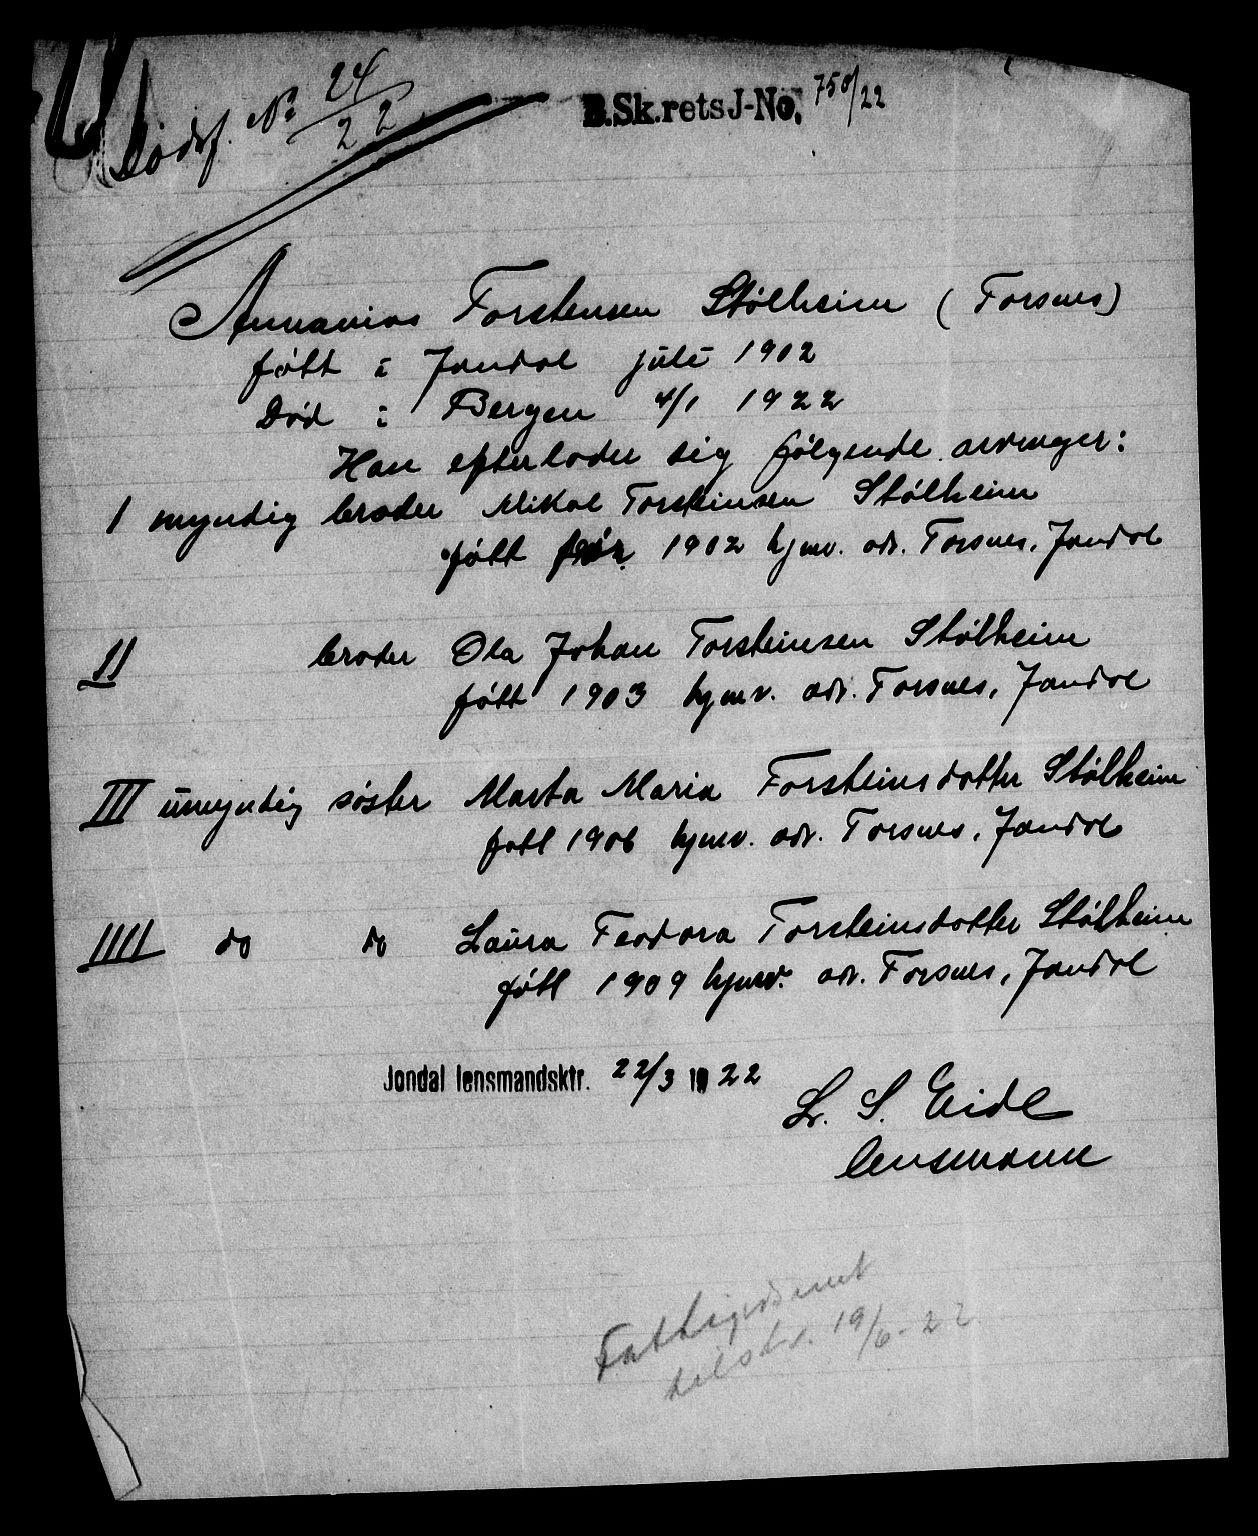 Dødsf. No 24/22
B.Sk.rets J-No. 758/22
Annanias Torsteinsen Stølheim (Torsnes)
født i Jondal juli 1902
død i Bergen 4/1 1922
Han efterlader sig følgende arvinger:
I myndig broder Mikal Torsteinsen Stølheim
født 1902 hjmv. adr. Torsnes, Jondal
II broder Ola Johan Torsteinsen Stølheim
født 1903 hjmv. adr. Torsnes, Jondal
III umyndig søster Marta Maria Torsteinsdotter Stølheim
født 1906 hjmv. adr. Torsnes, Jondal
IIII do do Laura Feodora Torsteinsdotter Stølheim
født 1909 hjmv. adr. Torsnes, Jondal
Jondal lensmandsktr. 22/3 1922
L. S. Eide
lensmann
19/6-22